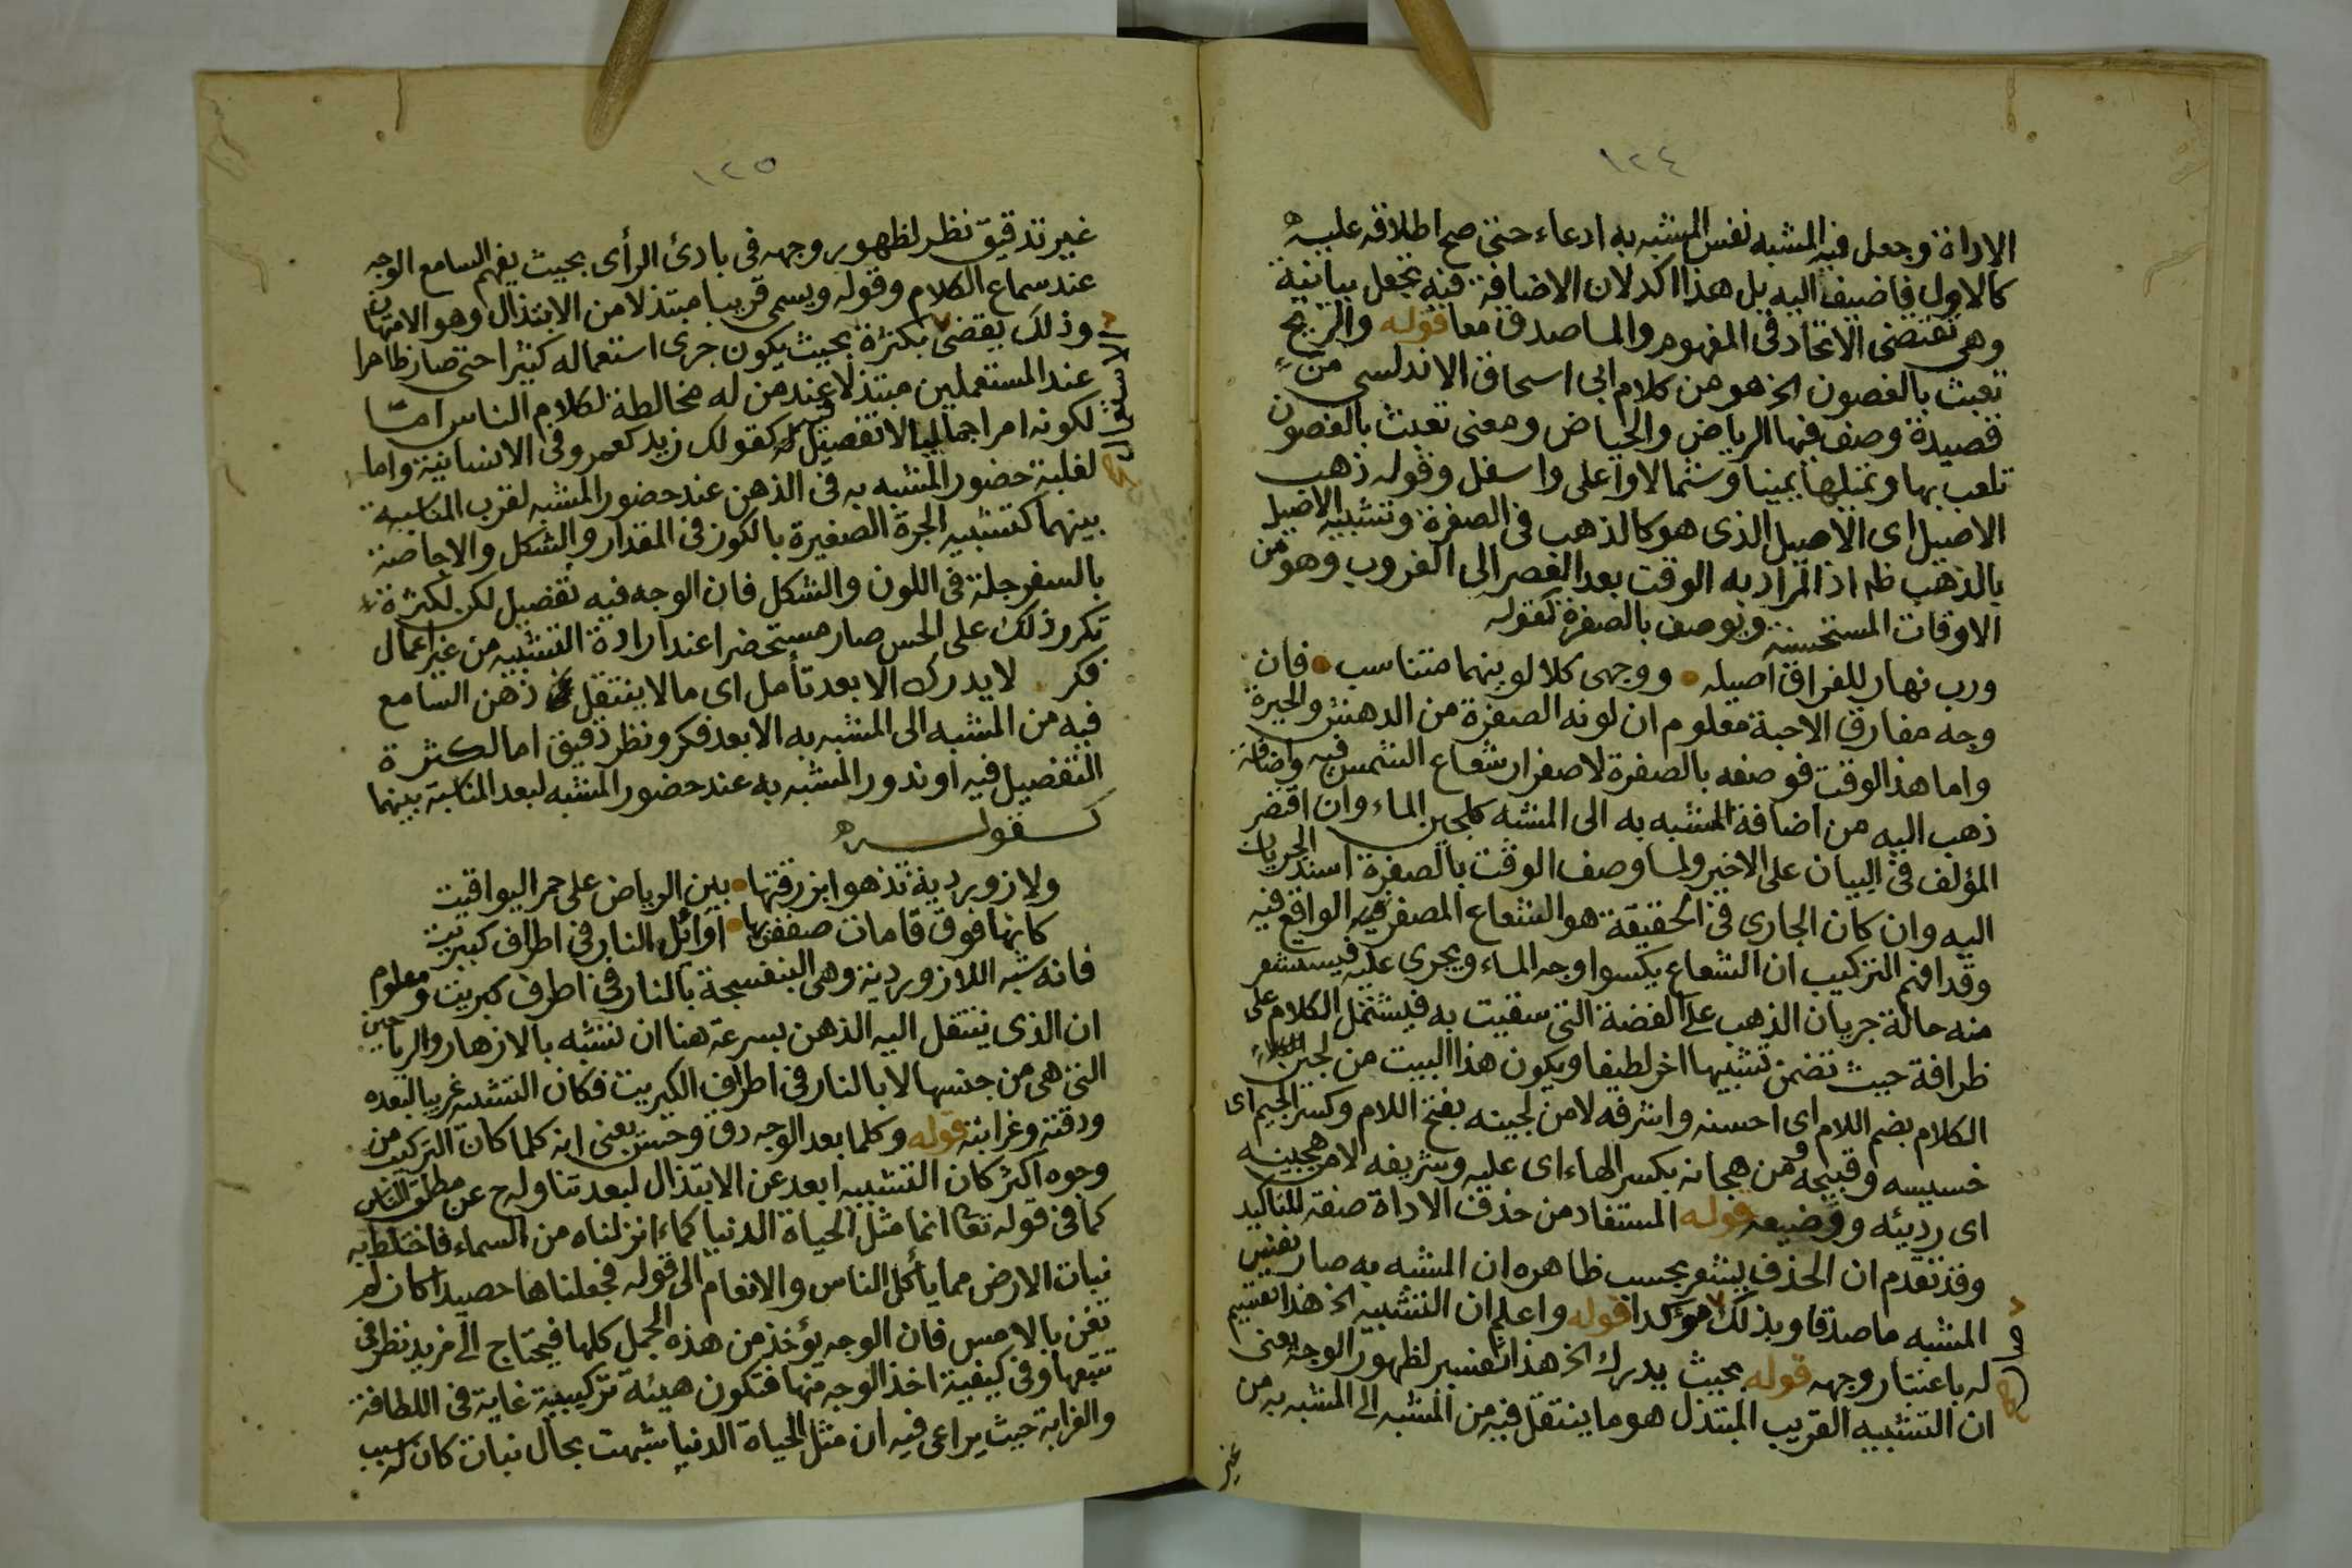 ١٢٤
الاداة وجعل فيه المشبه نفس المشبه به ادعاء حتى صح اطلاقه عليه
كالاول فاضيف اليه بل هذا اكد لان الاضافة فيه تجعل بيانية
وهى تقتضى الاتحاد فى المفهوم والماصدق معا قوله والريح
تعبث بالغصون الخ هو من كلام ابى اسحاق الاندلسى من
قصيدة وصف فيها الرياض والحياض ومعنى تعبث بالغصون
تلعب بها وتميلها يمينا وشمالا واعلى واسفل وقوله ذهب
الاصيل اى الاصيل الذى هو كالذهب فى الصفرة وتشبيه الاصيل
بالذهب ظه اذ المراد به الوقت بعد العصر الى الغروب وهو من
الاوقات المستحسنة ويوصف بالصفرة كقوله
ورب نهار للفراق اصيله • ووجهى كلا لونيهما متناسب • فان
وجه مفارق الاحبة معلوم ان لونه الصفرة من الدهش والحيرة
واما هذا الوقت فوصفه بالصفرة لاصفرار شعاع الشمس فيه واضافة
ذهب اليه من اضافة المشبه به الى المشبه كلجين الماء وان اقتصر
المؤلف فى البيان على الاخير ولما وصف الوقت بالصفرة اسند الجريان
اليه وان كان الجارى فى الحقيقة هو الشعاع المصفر فيه الواقع فيه
وقد افهم التركيب ان الشعاع يكسوا وجه الماء ويجرى عليه فيستشعر
منه حالة جريان الذهب على الفضة التى سقيت به فيشتمل الكلام على
ظرافة حيث تضمن تشبيها اخر لطيفا ويكون هذا البيت من لجين
الكلام بضم اللام اى احسنه واشرفه لا من لجينه بفتح اللام وكسر الجيم اى
خسيسه وقبيحه ومن هجانه بكسر الهاء اى عليه وشريفه لا من هجينه
اى رديئه ووضيعه قوله المستفاد من حذف الاداة صفة للتاكيد
وقد تقدم ان الحذف يشعر بحسب ظاهره ان المشبه به صار نفس
المشبه ماصدقا وبذلك مؤكدا قوله واعلم ان التشبيه الخ هذا تقسيم
له باعتبار وجهه قوله بحيث يدرك الخ هذا تفسير لظهور الوجه يعنى
ان التشبيه القريب المبتذل هو ما ينتقل فيه من المشبه الى المشبه به من
غير
١٢٥
غير تدقيق نظر لظهور وجهه فى بادئ الرأى بحيث يفهم السامع الوجه
عند سماع الكلام وقوله ويسمى قريبا مبتذلا من الابتذال وهو الامتهان
وذلك يقضى بكثرة بحيث يكون جرى استعماله كثيرا حتى صار ظاهرا
عند المستعملين مبتذلا عند من له مخالطة لكلام الناس امّا
لكونه امرا جماليا لا تفصيل له كقولك زيد كعمرو فى الانسانية واما
لغلبة حضور المشبه به فى الذهن عند حضور المشبه لقرب المناسبة
بينهما كتشبيه الجرة الصغيرة بالكوز فى المقدار والشكل والاجاصة
بالسفرجلة فى اللون والشكل فان الوجه فيه تفصيل لكن لكثرة
تكرر ذلك على الحس صار مستحضرا عند ارادة التشبيه من غير اعمال
فكر لا يدرك الا بعد تأمل اى ما لا ينتقل ذهن السامع
فيه من المشبه الى المشبه به الا بعد فكر ونظر دقيق اما لكثرة
التفصيل فيه او ندور المشبه به عند حضور المشبه لبعد المناسبة بينهما
كقوله
ولازوردية تذهوا بزرقتها • بين الرياض على حمر اليواقيت
كانها فوق قامات ضعفن بها • اوائل النار فى اطراف كبريت
فانه شبه اللازوردية وهى البنفسجة بالنار فى اطراف كبريت ومعلوم
ان الذى ينتقل اليه الذهن بسرعة هنا ان تشبه بالازهار والرياحين
التى هى من جنسها لا بالنار فى اطراف الكبريت فكان التشبيه غريبا لبعده
ودقته وغرابته قوله وكلما بعد الوجه دق وحسن يعنى انه كلما كان التركيب من
وجوه اكثر كان التشبيه ابعد عن الابتذال لبعد تناوله ح عن مطلق الناس
كما فى قوله تعا انما مثل الحياة الدنيا كماء انزلناه من السماء فاختلط به
نبات الارض مما يأكل الناس والانعام الى قوله فجعلناها حصيدا كان لم
تغن بالامس فان الوجه يؤخذ من هذه الجمل كلها فيحتاج الى مزيد نظر فى
تتبعها وفى كيفية اخذ الوجه منها فتكون هيئة تركيبية غاية فى اللطافة
والغرابة حيث يراعى فيه ان مثل الحياة الدنيا شبهت بحال نبات كان له سبب